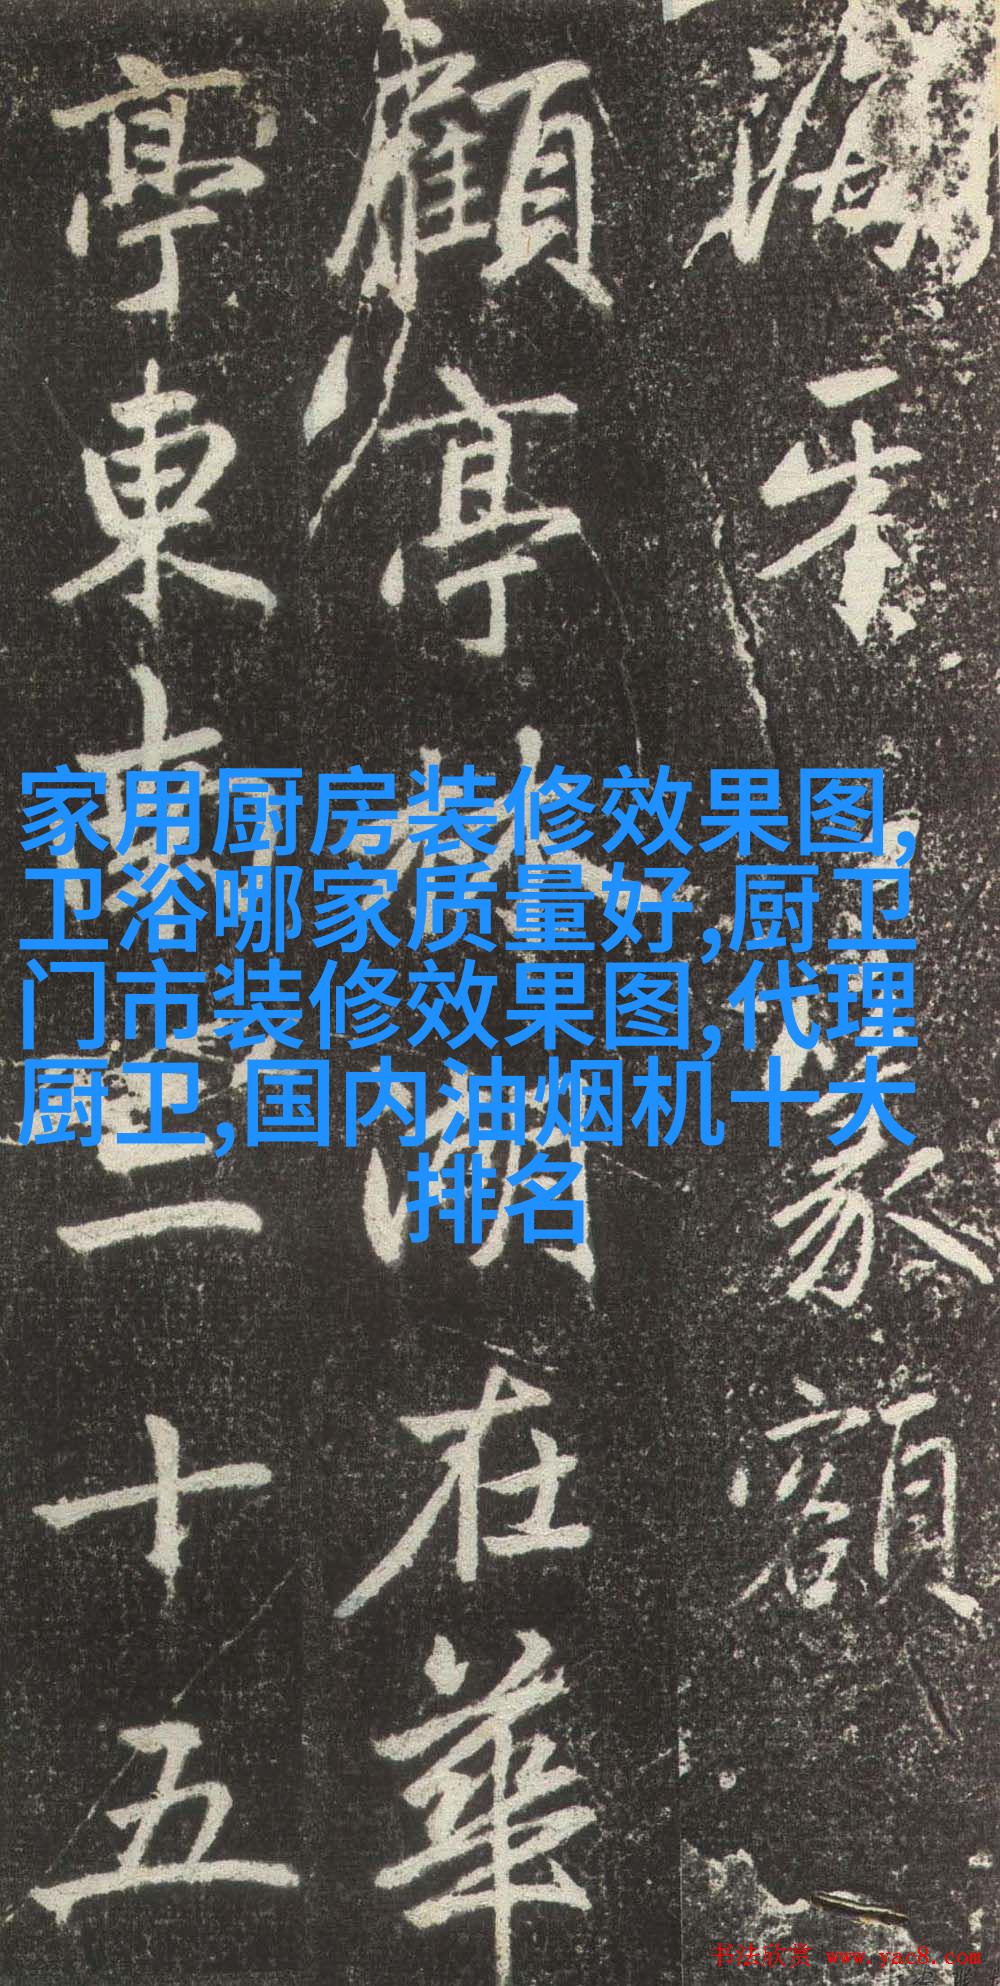 家用厨房装修效果图,
卫浴哪家质量好,厨卫
门市装修效果图,代理
厨卫,国内油烟机十大
排名
篆額
顧亭林湖在華
亭東南三十五
书法欣赏 www.yac8.com